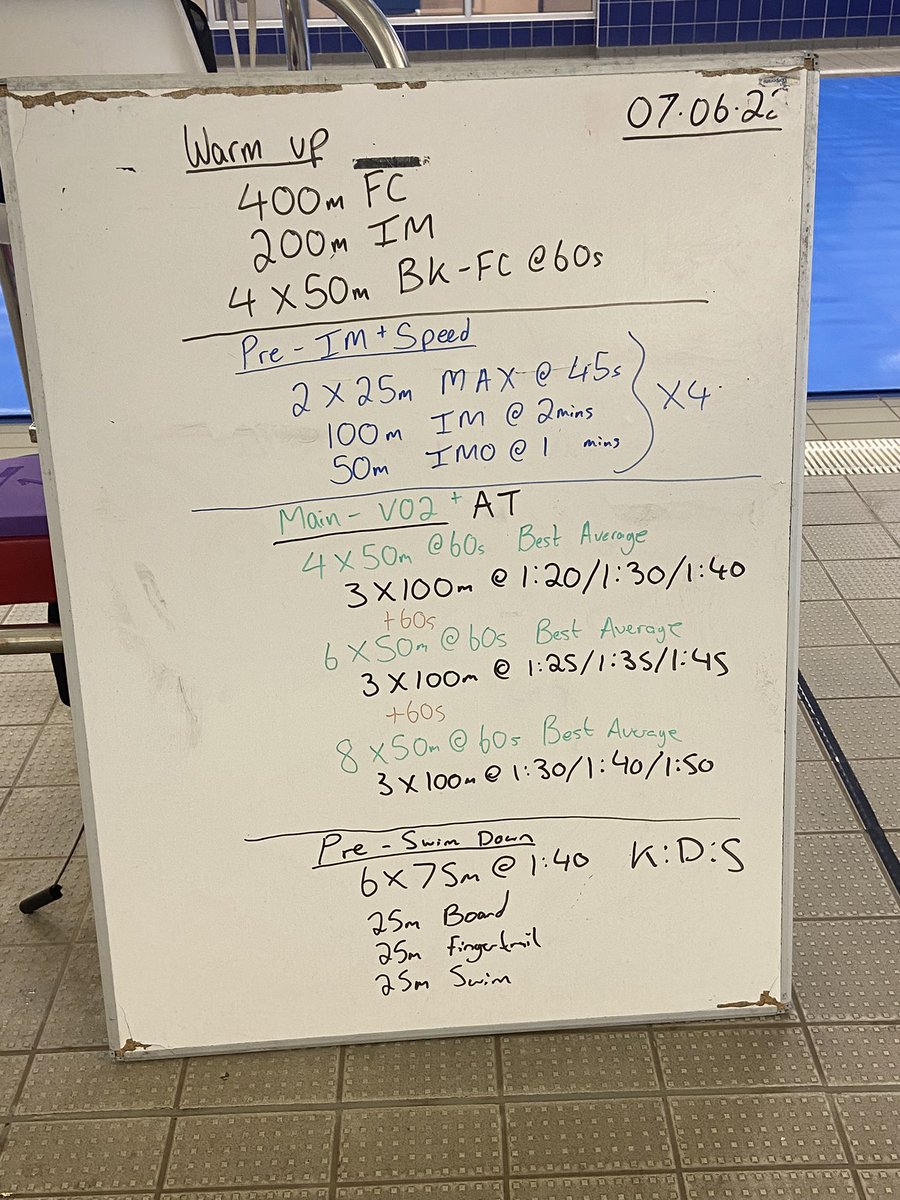 07.06.22
Warm up
400m FC
200m IM
4 X 50m BK-FC @60s
Pre - IM + Speed
2 X 25m MAX @ 45s
100m IM @ 2mins
50m IMO @ 1 mins
X4
Main - VO2 + AT
4 X 50m @60s Best Average
3 X 100m @ 1:20/1:30/1:40
+60s
6 X 50m @ 60s Best Average
3 X 100m @ 1:25/1:35/1:45
+60s
8 X 50m @ 60s Best Average
3 X 100m @ 1:30/1:40/1:50
Pre - Swim Down
6 X 75m @ 1:40 K:D:S
25m Board
25m Fingertrail
25m Swim